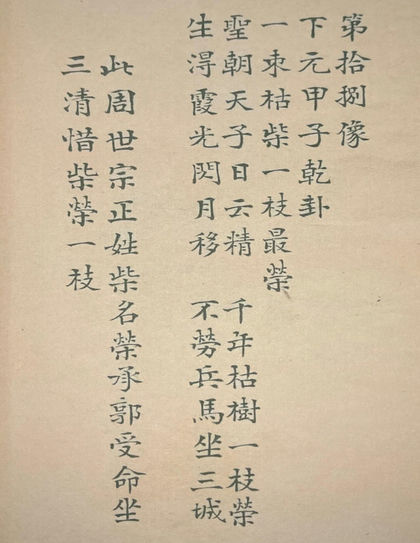 第拾捌像
下元甲子乾卦
一束枯柴一枝最榮
聖朝天子日云精　千年枯樹一枝榮
生淂霞光閃月移　不勞兵馬坐三城
此周世宗正姓柴名榮承郭受命坐
三清惜柴榮一枝